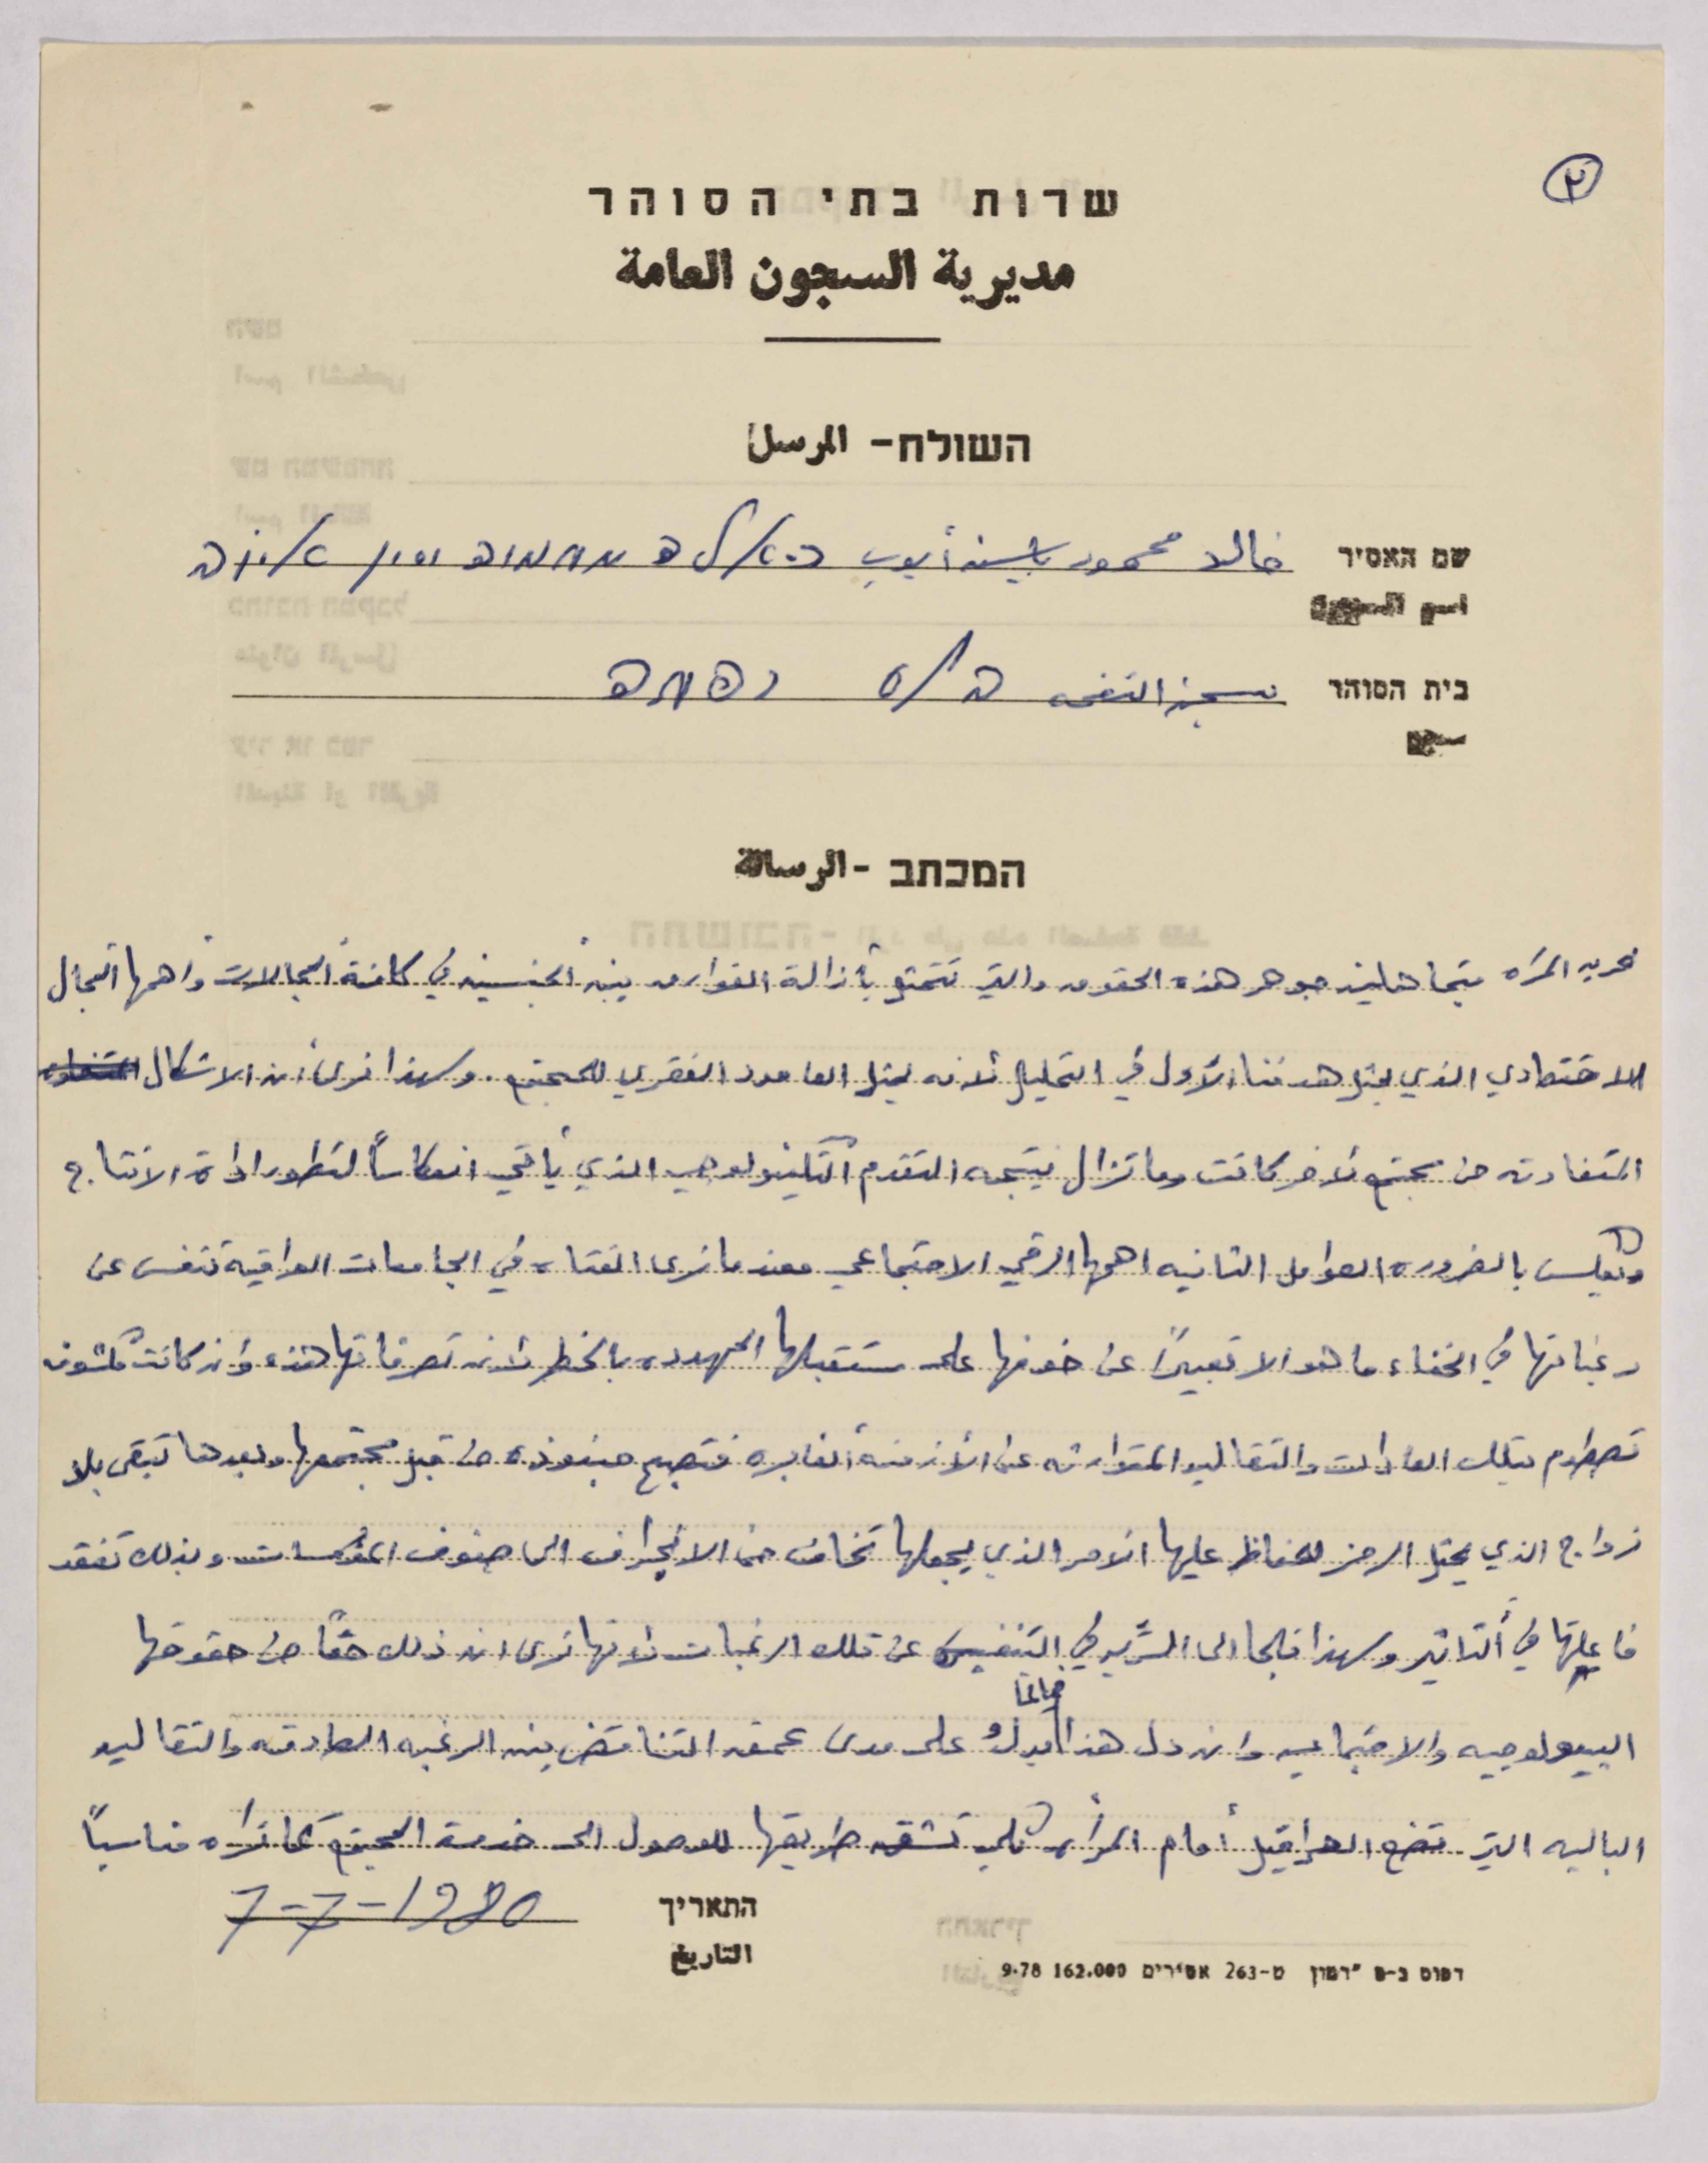 ٢
שרות בתי הסוהר
مديرية السجون العامة
השולח - المرسل
שם האסיר خالد محمود ياسين أيوب
اسم السجين
בית הסוהר سجن النفحه
سجن
המכתב - الرسالة
تحرير المرأه متجاهلين جوهر هذه الحقوق والتي تتمتع بأزالة الفوارق بين الجنسين في كافة المجالات واهمها المجال
الاقتصادي الذي يحتل هدفنا الأول في التحليل لأنه يمثل العامود الفقري للمجتمع. ولهذا نرى أن الاشكال
المتفاوته من مجتمع لآخر كانت وما تزال نتيجه التقدم التكنولوجي الذي يأتي انعكاساً لتطور اداة الانتاج
وتعكس بالضروره العوامل الثانيه اهمها الرقي الاجتماعي فعندما نرى الفتاه في الجامعات الراقية تنفس عن
رغباتها في الخفاء ما هو الا تعبيراً عن خوفها على مستقبلها المهدده بالخطر لأن تصرفاتها هذه وان كانت مكشوفه
تصطدم بتلك العادات والتقاليد المتوارثه عن الأزمنة الغابره فتصبح منبوذه من قبل مجتمعها وبعدها تبقى بلا
زواج الذي يحتل الرمز للحفاظ عليها الأمر الذي يجعلها تخاف من الانجراف الى صفوف المومسات وبذلك تفقد
فاعليتها في التأثير ولهذا تلجا الى السريه في التنفيس عن تلك الرغبات لأنها ترى ان ذلك حقاً من حقوقها
البيولوجيه والاجتماعيه وان دل هذا فإنما يدل على مدى عمق التناقض بين الرغبه الصادقه والتقاليد
الباليه التي تضع العراقيل أمام المرأه لكي تشق طريقها للوصول الى خدمة المجتمع كما تراه مناسباً
התאריך 7-7-1980
التاريخ
דפוס ב-ס "רמון ט-263 אסירים 162.000 9.78